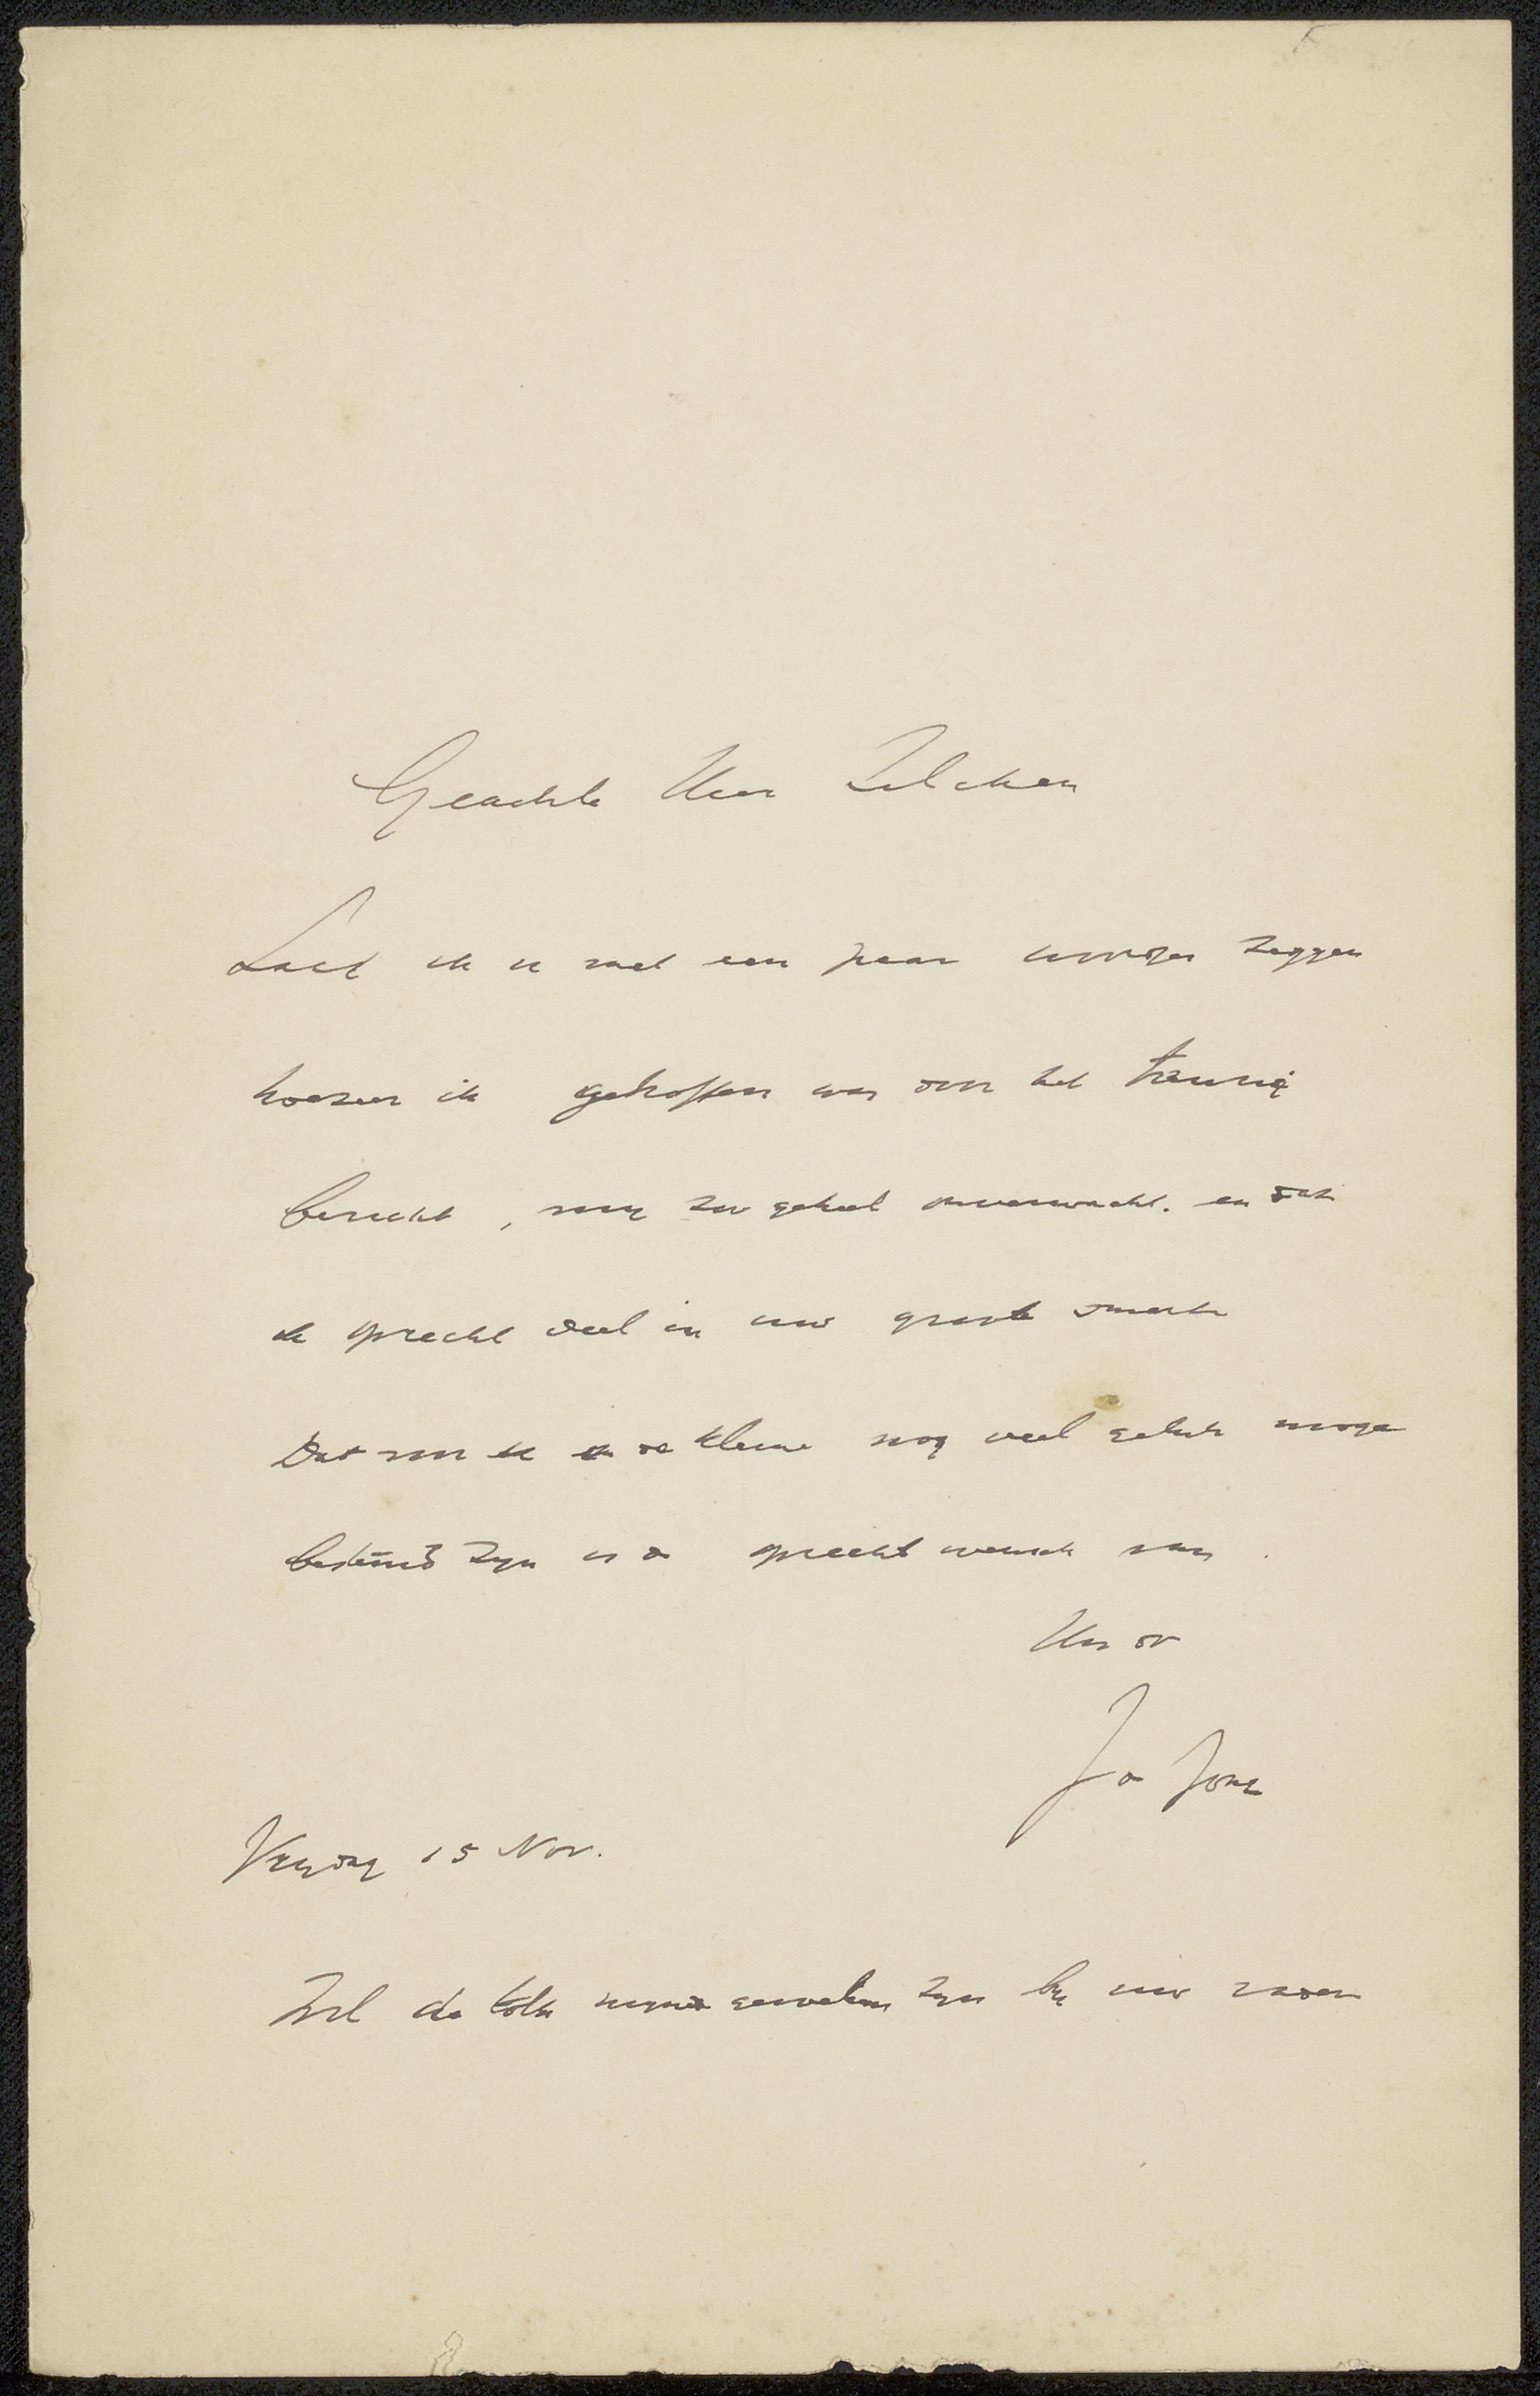 Geachte Heer Zilcken
Laat ik u met een paar woorden zeggen
hoezeer ik getroffen was over het treurig
bericht, mij zoo geheel onverwacht. en dat
ik oprecht deel in uw groote smarte
Dat voor U en de kleine nog veel geluk moge
bestemd zijn is de oprechte wensch van
Uw dv
Jo Jong
Vrijdag 15 Nov.
Zal de tolk mijner gevoelens zijn bij uw vader